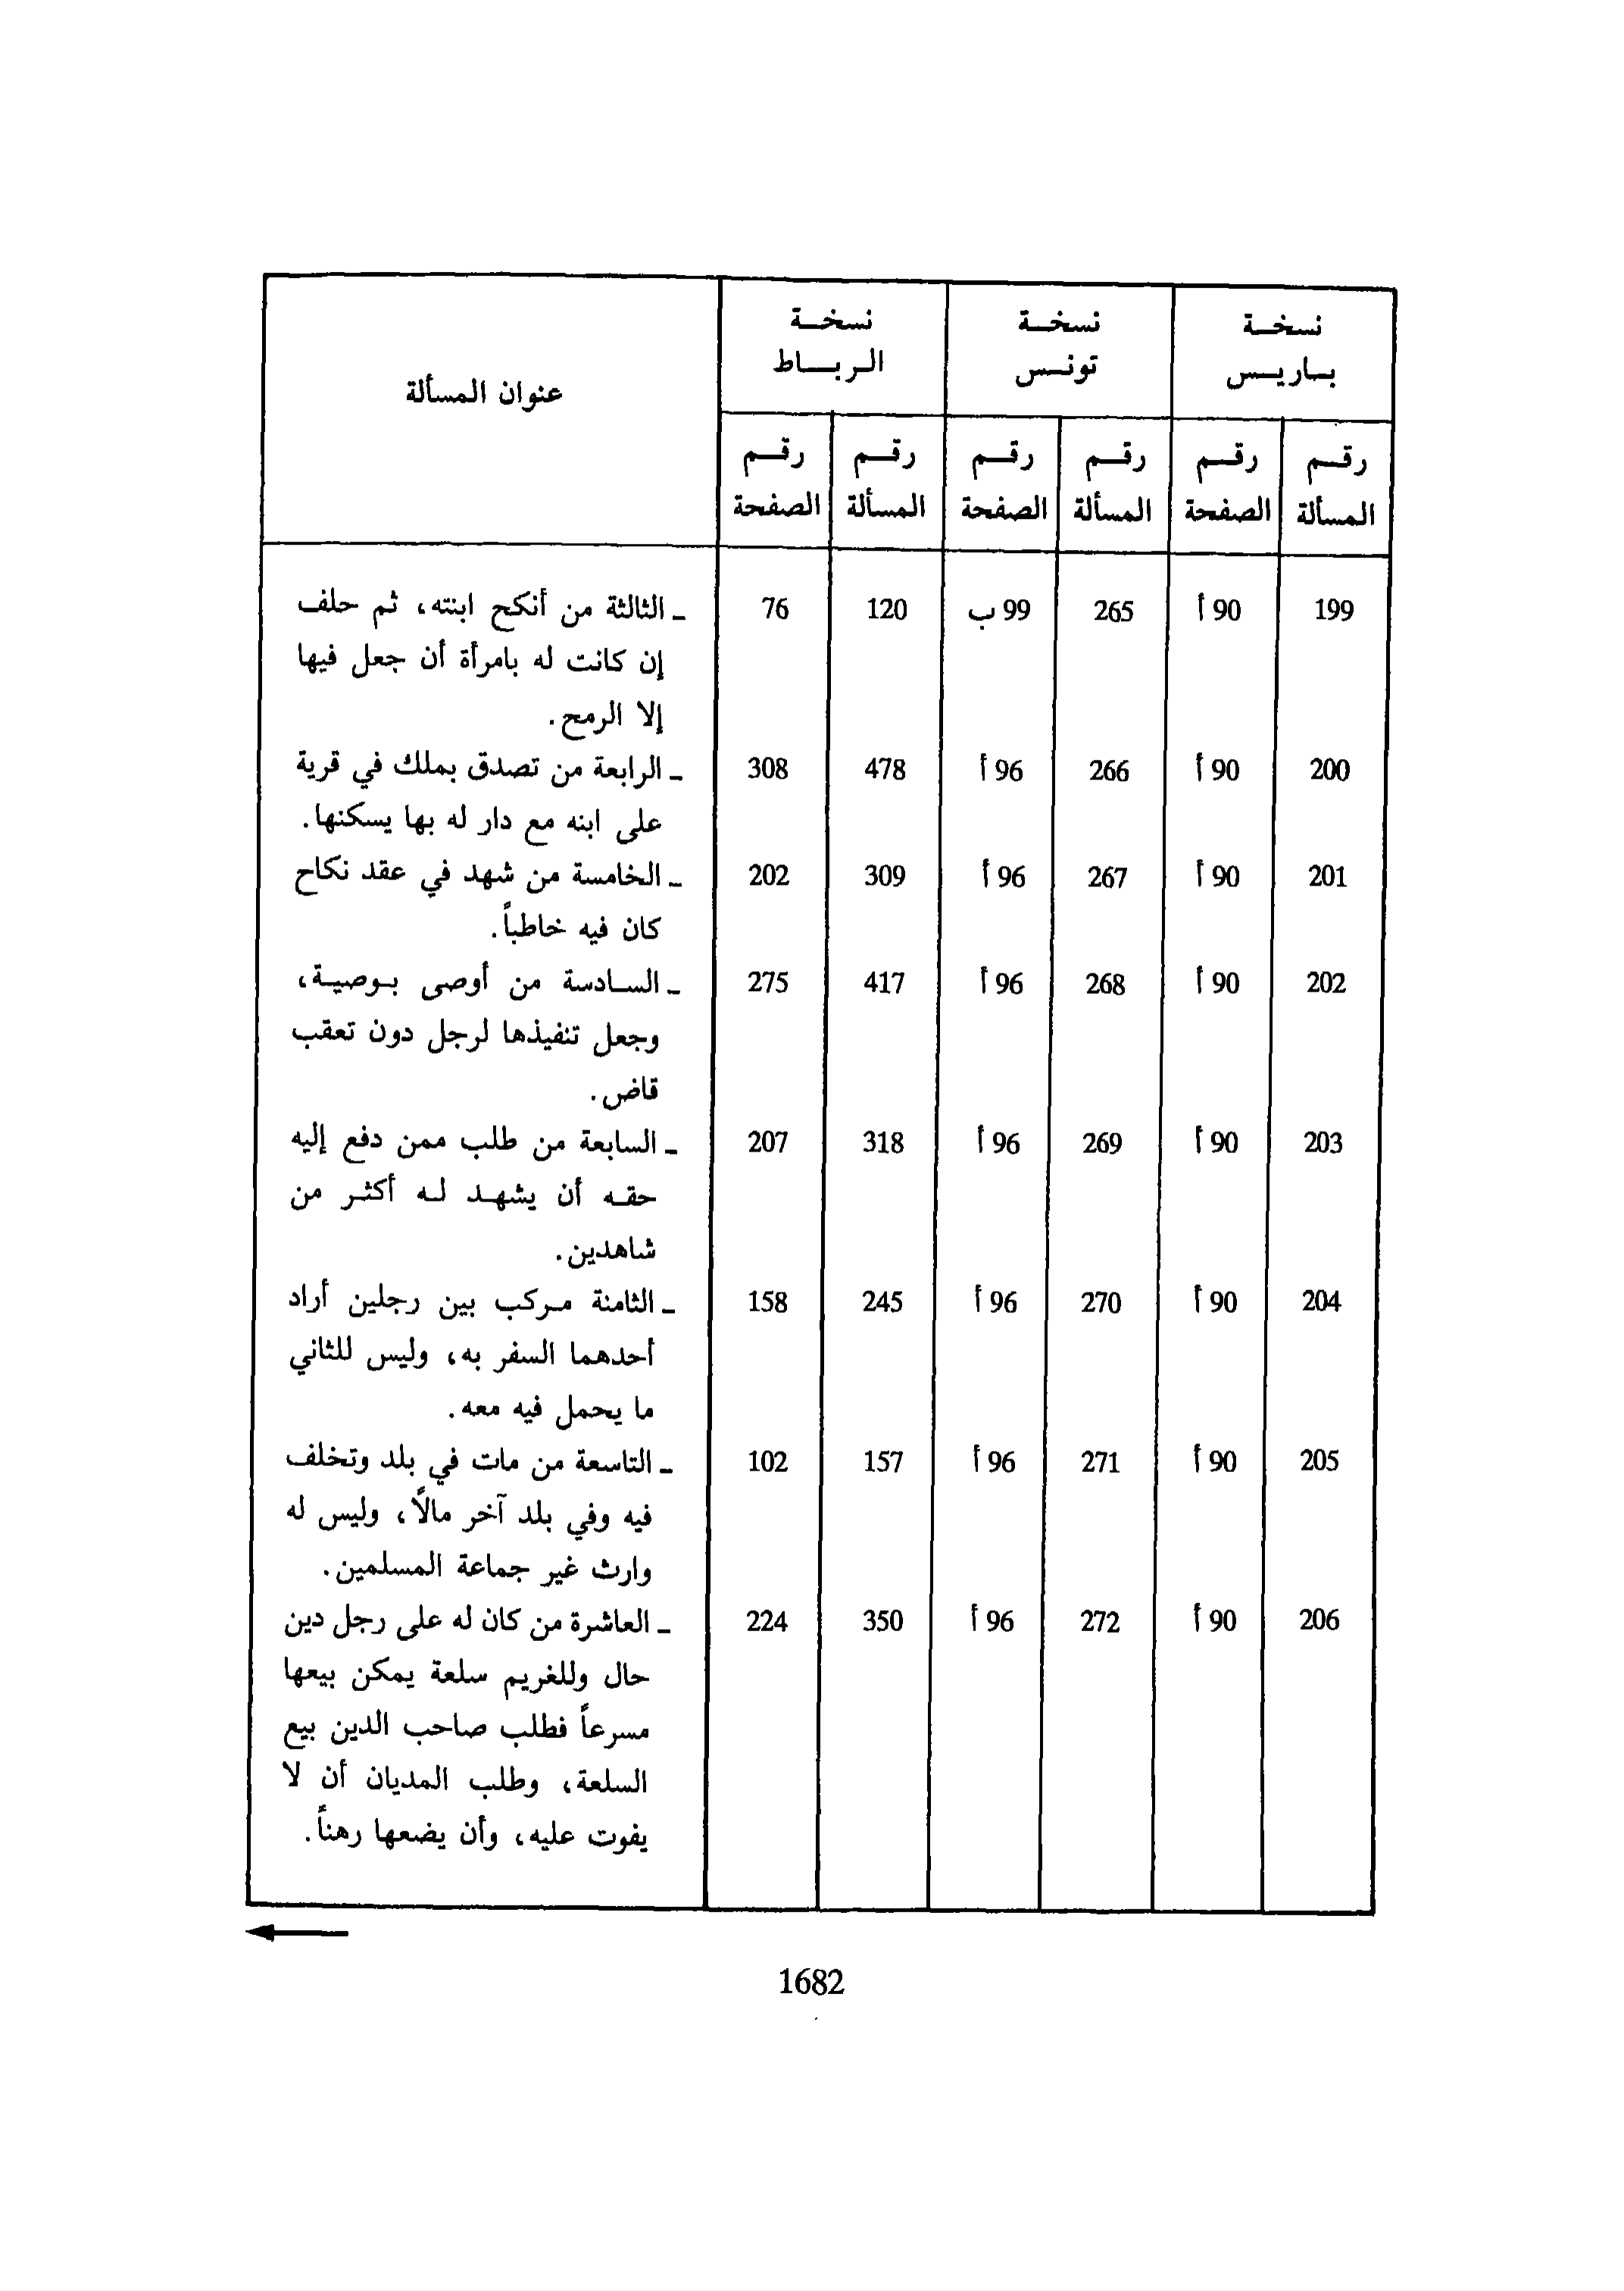 نسخة باريس	نسخة تونس	نسخة الرباط	عنوان المسألة
رقم المسألة	رقم الصفحة	رقم المسألة	رقم الصفحة	رقم المسألة	رقم الصفحة
199	90 أ	265	99 ب	120	76	ـ الثالثة من أنكح ابنته، ثم حلف
إن كانت له بامرأة أن جعل فيها
إلا الرمح.
200	90 أ	266	96 أ	478	308	ـ الرابعة من تصدق بملك في قرية
على ابنه مع دار له بها يسكنها.
201	90 أ	267	96 أ	309	202	ـ الخامسة من شهد في عقد نكاح
كان فيه خاطباً.
202	90 أ	268	96 أ	417	275	ـ السادسة من أوصى بوصية،
وجعل تنفيذها لرجل دون تعقب
قاض.
203	90 أ	269	96 أ	318	207	ـ السابعة من طلب ممن دفع إليه
حقه أن يشهد له أكثر من
شاهدين.
204	90 أ	270	96 أ	245	158	ـ الثامنة مركب بين رجلين أراد
أحدهما السفر به، وليس للثاني
ما يحمل فيه معه.
205	90 أ	271	96 أ	157	102	ـ التاسعة من مات في بلد وتخلف
فيه وفي بلد آخر مالاً، وليس له
وارث غير جماعة المسلمين.
206	90 أ	272	96 أ	350	224	ـ العاشرة من كان له على رجل دين
حال وللغريم سلعة يمكن بيعها
مسرعاً فطلب صاحب الدين بيع
السلعة، وطلب المديان أن لا
يفوت عليه، وأن يضعها رهناً.
1682